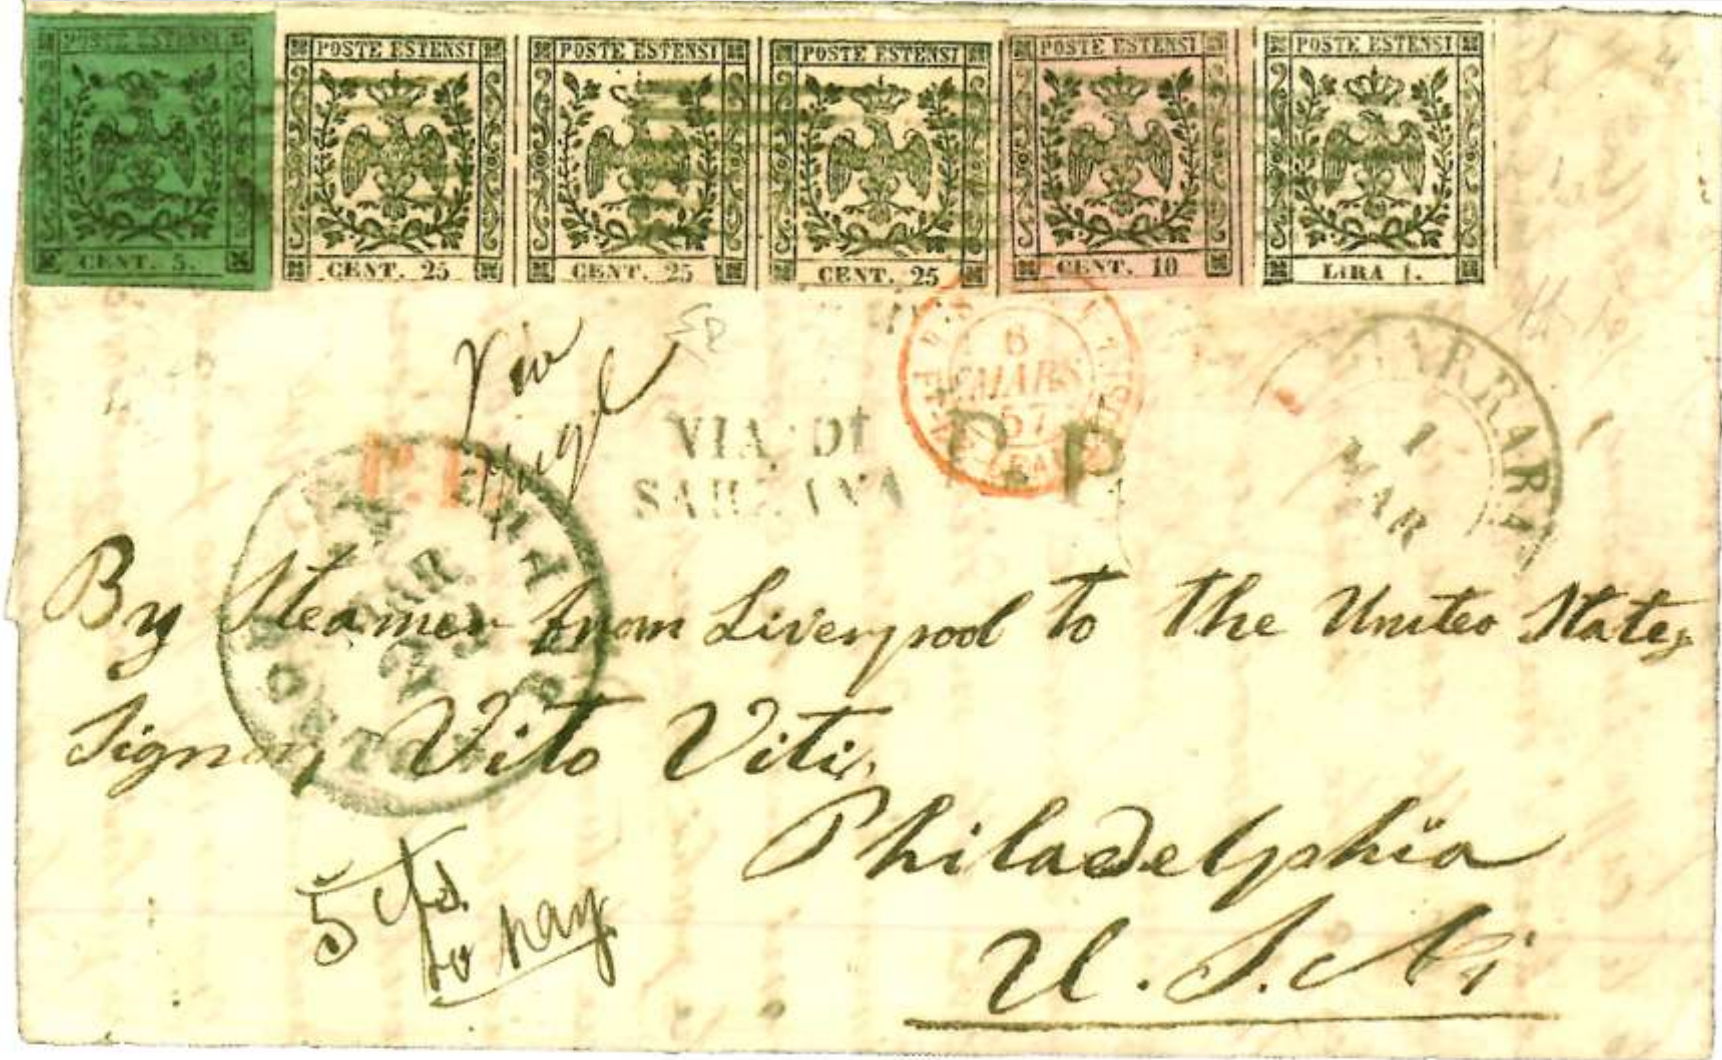 POSTE ESTENSI
CENT. 5.
POSTE ESTENSI
CENT. 25
POSTE ESTENSI
CENT. 25
POSTE ESTENSI
CENT. 25
POSTE ESTENSI
CENT. 10
POSTE ESTENSI
LIRA 1.
Via
Ingl
VIA DI
SARZANA
6
MARS
57
P.P
CARRARA
1
MAR
P.D.
MAR
21
By Steamer from Liverpool to the United States
Signor, Vito Viti,
Philadelphia
U. S. A
5 cts.
to pay